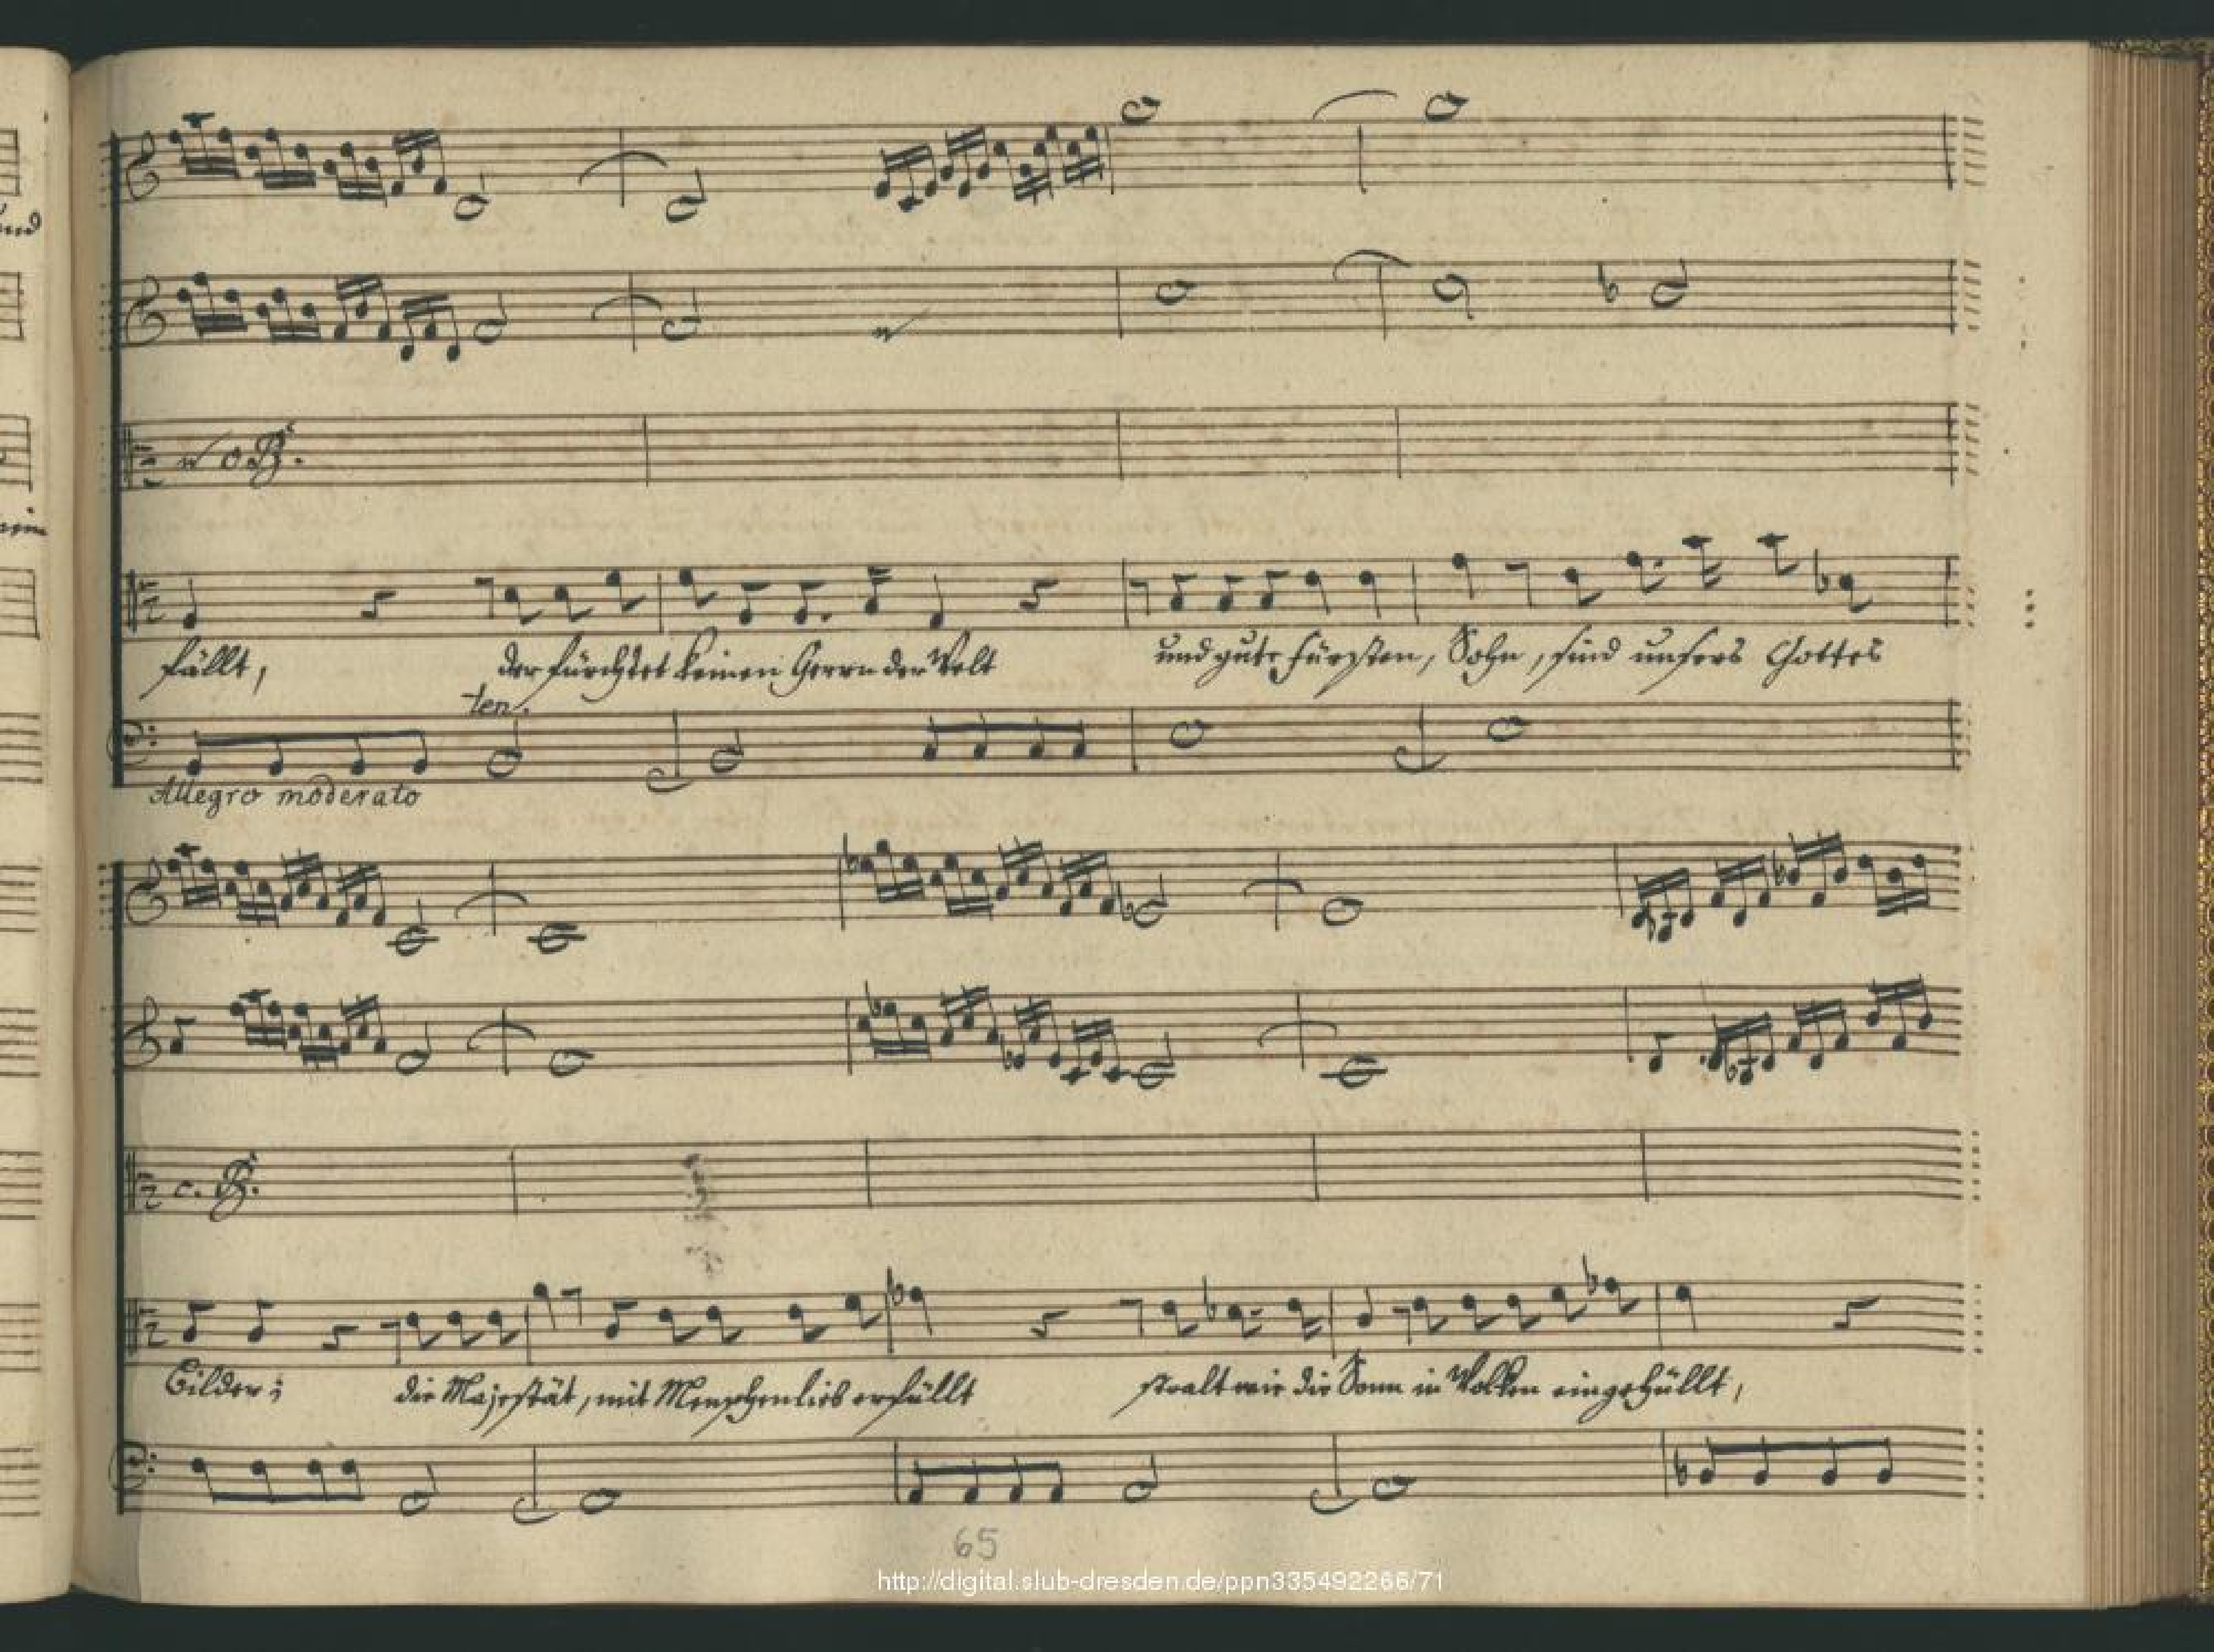 und
c. B.
ein
fällt, der fürchtet keinen Herrn der Welt und gute Fürsten, Sohn, sind unsers Gottes
ten.
Allegro moderato
c. B.
Bilder; die Majestät, mit Menschenlieb erfüllt stralt wie die Sonn in Wolken eingehüllt,
65
http://digital.slub-dresden.de/ppn335492266/71